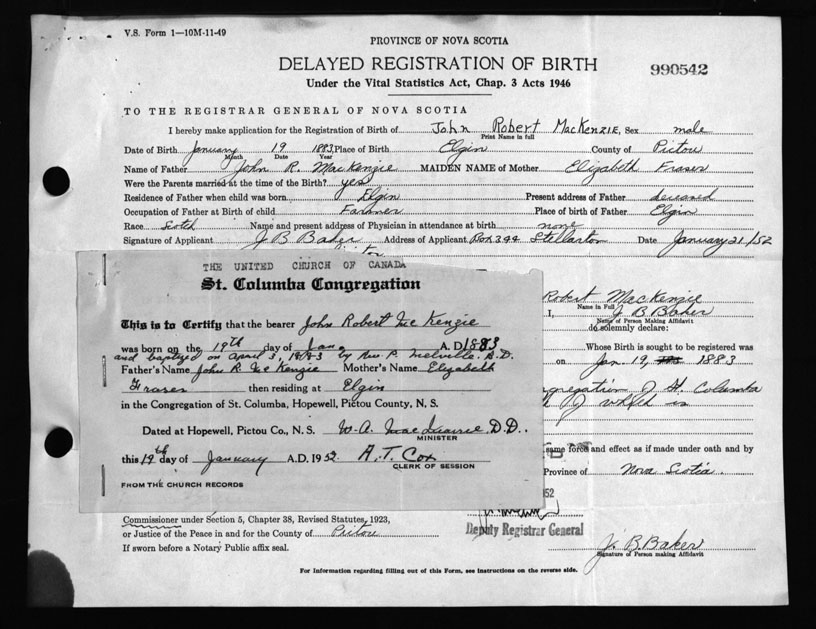 V.S. Form 1—10M-11-49
PROVINCE OF NOVA SCOTIA
DELAYED REGISTRATION OF BIRTH
990542
Under the Vital Statistics Act, Chap. 3 Acts 1946
TO THE REGISTRAR GENERAL OF NOVA SCOTIA
I hereby make application for the Registration of Birth of John Robert MacKenzie, Sex male
Print Name in full
Date of Birth January 19 1883, Place of Birth Elgin County of Pictou
Month Date Year
Name of Father John R. MacKenzie MAIDEN NAME of Mother Elizabeth Fraser
Were the Parents married at the time of the Birth? yes
Residence of Father when child was born Elgin Present address of Father deceased
Occupation of Father at Birth of child Farmer Place of birth of Father Elgin
Race Scotch Name and present address of Physician in attendance at birth none
Signature of Applicant J B Baker Address of Applicant Box 394 Stellarton Date January 21/52
THE UNITED CHURCH OF CANADA
St. Columba Congregation
This is to Certify that the bearer John Robert Mc Kenzie
was born on the 19th day of Jan A.D. 1883
and baptized on April 3, 1883 by Rev P. Melville. B.D.
Father's Name John R. Mc Kenzie Mother's Name Elizabeth
Fraser then residing at Elgin
in the Congregation of St. Columba, Hopewell, Pictou County, N. S.
Dated at Hopewell, Pictou Co., N. S. W. A. MacQuarrie D.D.
MINISTER
this 19th day of January A.D. 1952. A. T. Cox
CLERK OF SESSION
FROM THE CHURCH RECORDS
Robert MacKenzie
Name in Full
I, J B Baker
Name of Person Making Affidavit
do solemnly declare:
Whose Birth is sought to be registered was
on Jan 19, 1883
Congregation of St. Columba
of which is
same force and effect as if made under oath and by
Province of Nova Scotia.
52
Deputy Registrar General
Commissioner under Section 5, Chapter 38, Revised Statutes, 1923,
or Justice of the Peace in and for the County of Pictou
If sworn before a Notary Public affix seal.
J. B. Baker
Signature of Person making Affidavit
For Information regarding filling out of this Form, see instructions on the reverse side.